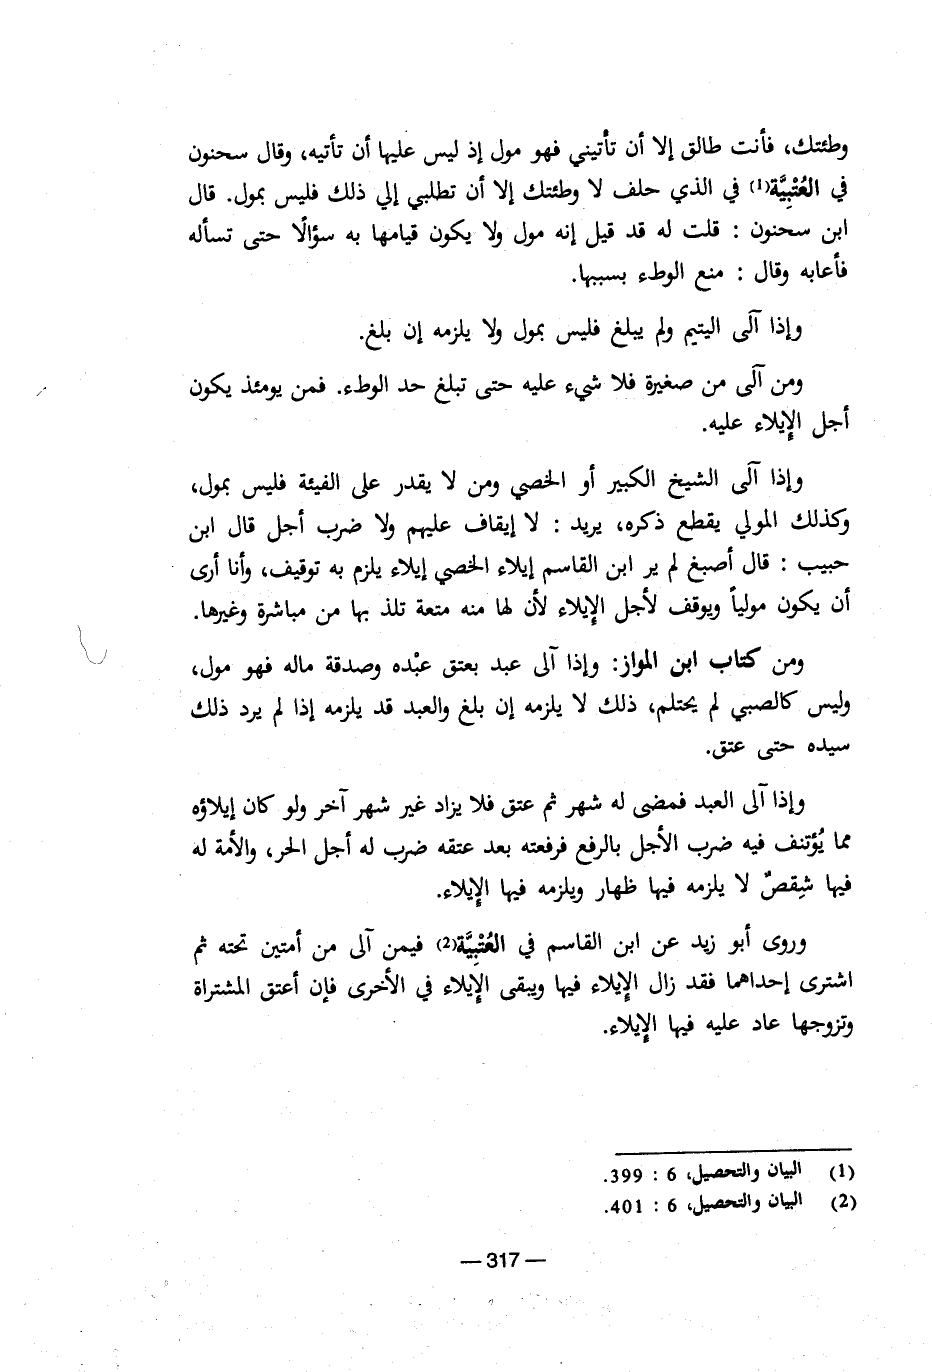 وطئتك، فأنت طالق إلا أن تأتيني فهو مول إذ ليس عليها أن تأتيه، وقال سحنون
في العُتْبِيَّة(1) في الذي حلف لا وطئتك إلا أن تطلبي إلي ذلك فليس بمول. قال
ابن سحنون : قلت له قد قيل إنه مول ولا يكون قيامها به سؤالًا حتى تسأله
فأعابه وقال : منع الوطء بسببها.
وإذا آلَى اليتيم ولم يبلغ فليس بمول ولا يلزمه إن بلغ.
ومن آلَى من صغيرة فلا شيء عليه حتى تبلغ حد الوطء. فمن يومئذ يكون
أجل الإِيلاء عليه.
وإذا آلَى الشيخ الكبير أو الخصي ومن لا يقدر على الفيئة فليس بمول،
وكذلك المولي يقطع ذكره، يريد : لا إيقاف عليهم ولا ضرب أجل قال ابن
حبيب : قال أصبغ لم ير ابن القاسم إيلاء الخصي إيلاء يلزم به توقيف، وأنا أرى
أن يكون مولياً ويوقف لأجل الإِيلاء لأن لها منه متعة تلذ بها من مباشرة وغيرها.
ومن كتاب ابن المواز: وإذا آلى عبد بعتق عبْده وصدقة ماله فهو مول،
وليس كالصبي لم يحتلم، ذلك لا يلزمه إن بلغ والعبد قد يلزمه إذا لم يرد ذلك
سيده حتى عتق.
وإذا آلى العبد فمضى له شهر ثم عتق فلا يزاد غير شهر آخر ولو كان إيلاؤه
مما يُؤتنف فيه ضرب الأجل بالرفع فرفعته بعد عتقه ضرب له أجل الحر، والأمة له
فيها شِقصٌ لا يلزمه فيها ظهار ويلزمه فيها الإِيلاء.
وروى أبو زيد عن ابن القاسم في العُتْبِيَّة(2) فيمن آلى من أمتين تحته ثم
اشترى إحداهما فقد زال الإِيلاء فيها ويبقى الإِيلاء في الأخرى فإن أعتق المشتراة
وتزوجها عاد عليه فيها الإِيلاء.
(1) البيان والتحصيل، 6 : 399.
(2) البيان والتحصيل، 6 : 401.
— 317 —